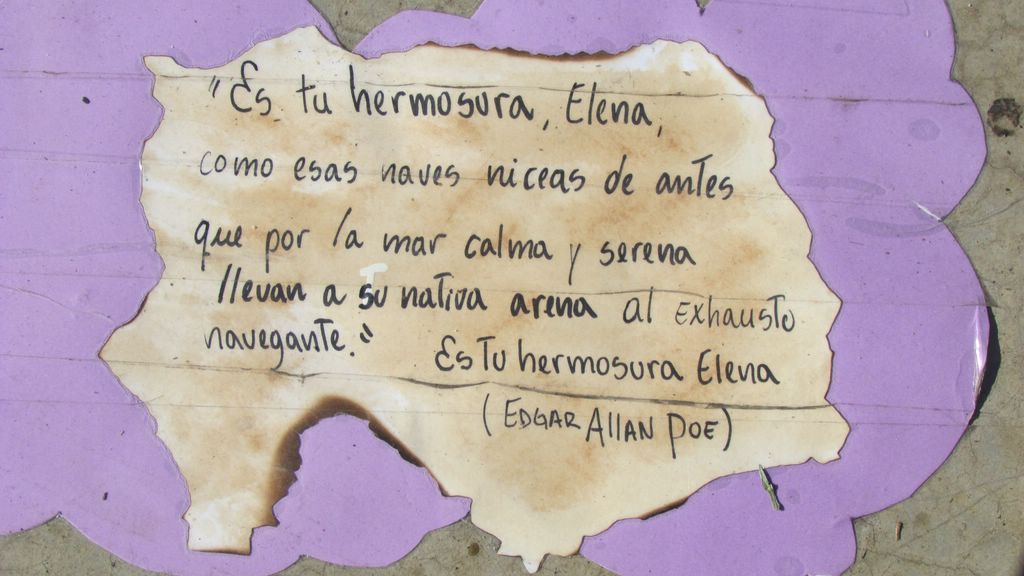 "Es tu hermosura, Elena,
como esas naves niceas de antes
que por la mar calma y serena
llevan a su nativa arena al exhausto
navegante."
Es Tu hermosura Elena
(EDGAR AllAN POE)